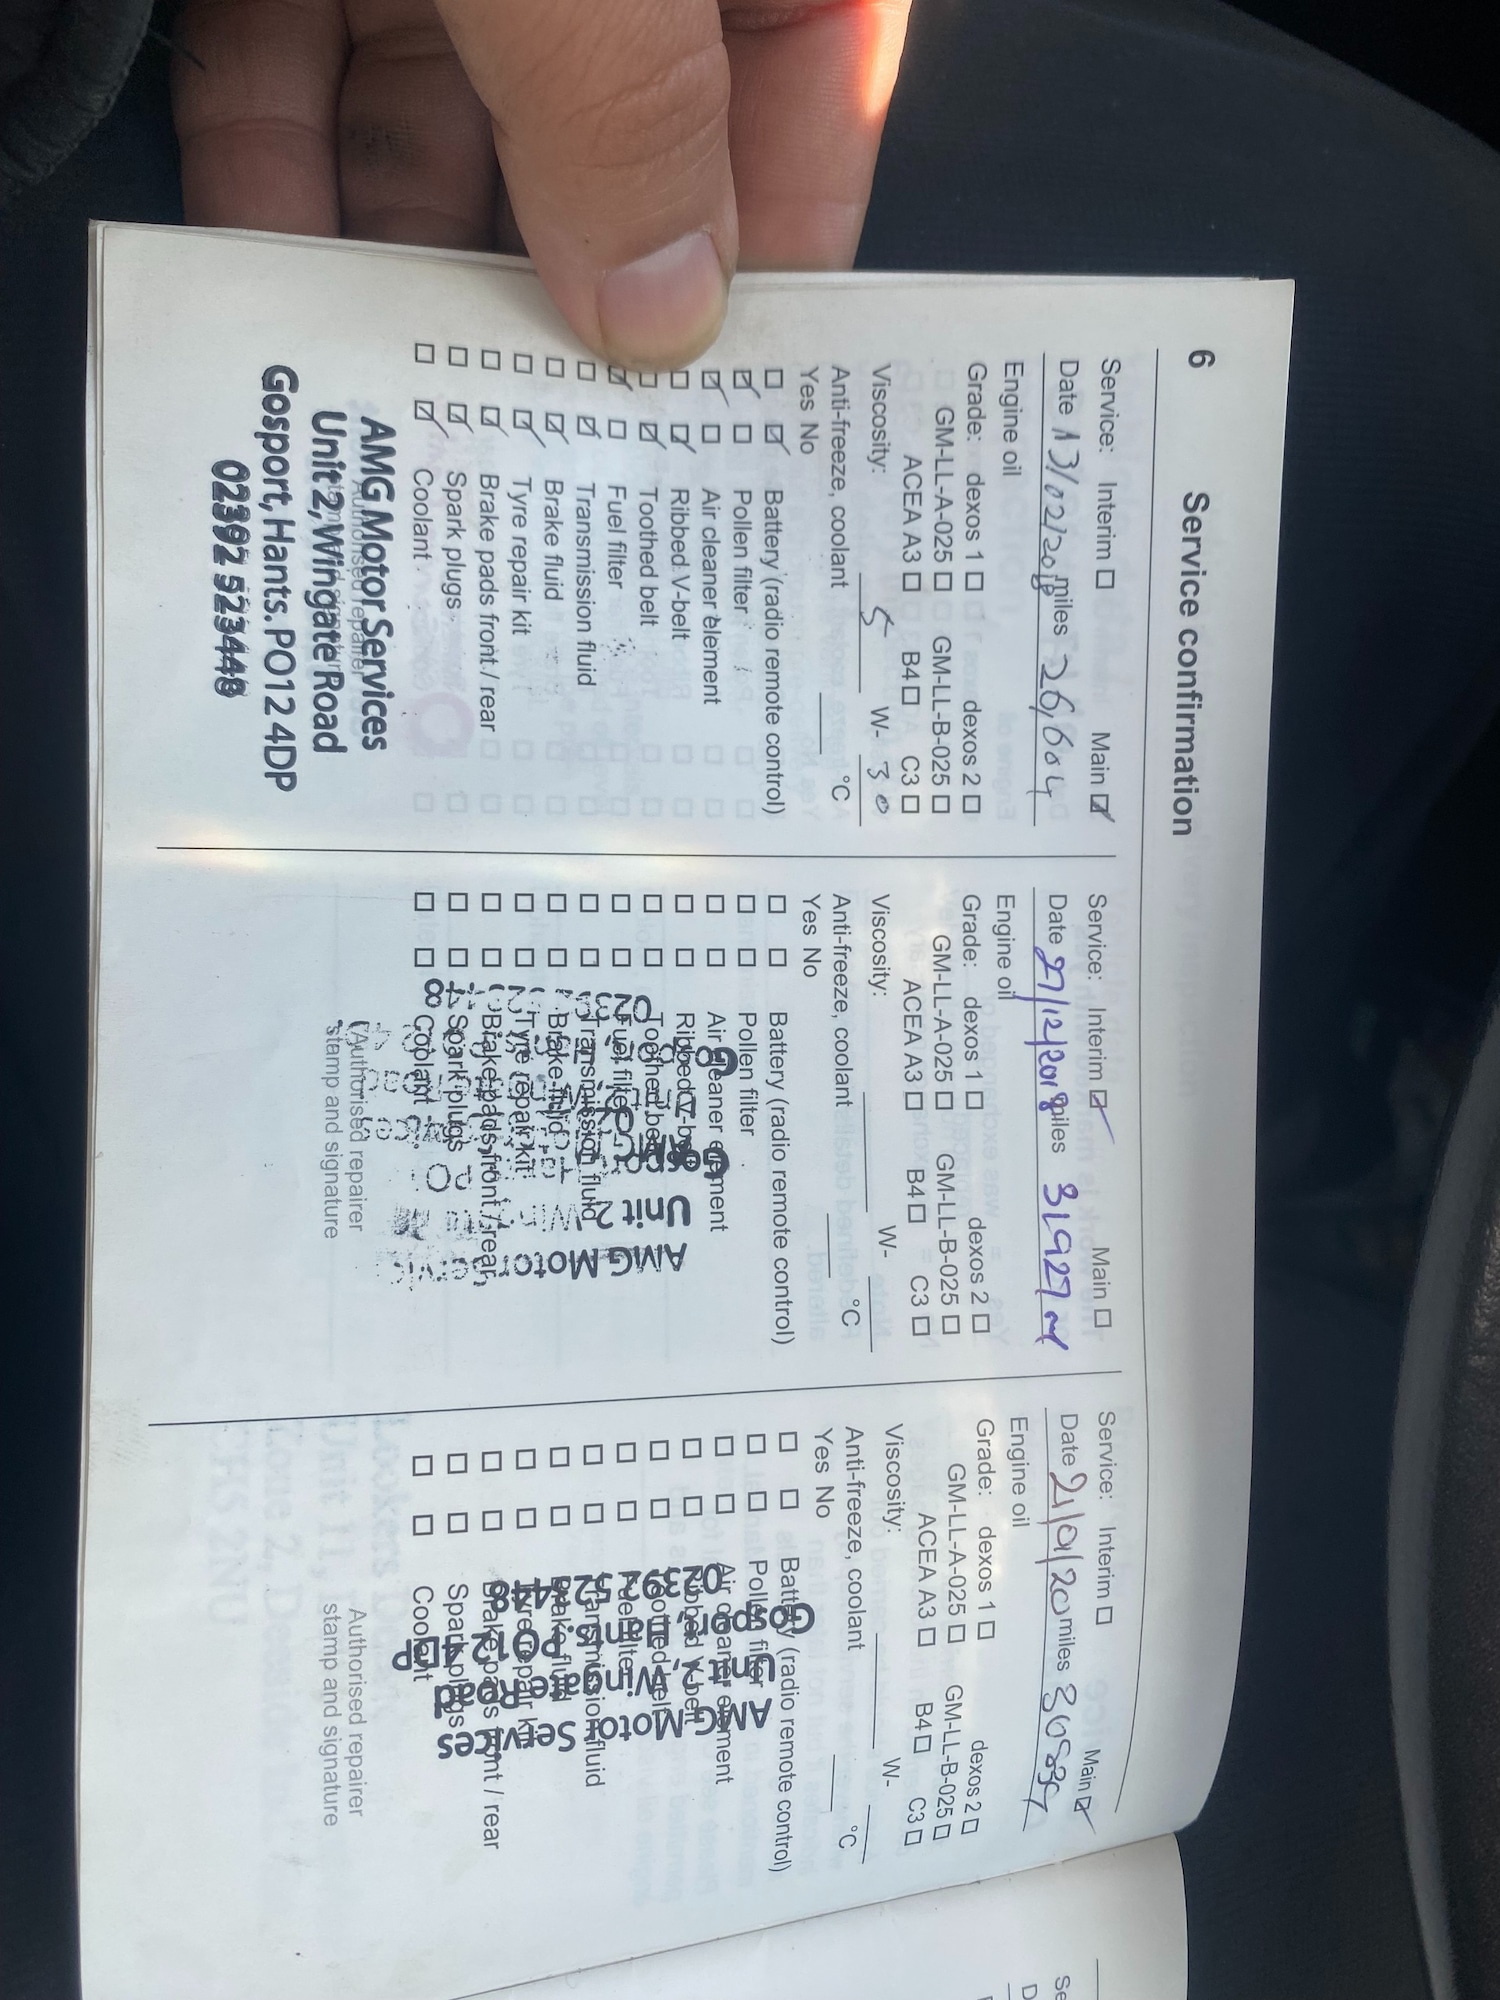 6 Service confirmation
Service: Interim ☐ Main ☑
Date 13/02/2018 miles 26,604
Engine oil
Grade: dexos 1 ☐ dexos 2 ☐
GM-LL-A-025 ☐ GM-LL-B-025 ☐
ACEA A3 ☐ B4 ☐ C3 ☐
Viscosity: 5 W- 30
Anti-freeze, coolant °C
Yes No
☐ ☑ Battery (radio remote control)
☑ ☐ Pollen filter
☑ ☐ Air cleaner element
☐ ☑ Ribbed V-belt
☐ ☑ Toothed belt
☑ ☐ Fuel filter
☐ ☑ Transmission fluid
☐ ☑ Brake fluid
☐ ☑ Tyre repair kit
☐ ☑ Brake pads front / rear
☐ ☑ Spark plugs
☐ ☑ Coolant
AMG Motor Services
Unit 2, Wingate Road
Gosport, Hants. PO12 4DP
02392 523448
Service: Interim ☑ Main ☐
Date 27/12/2018 miles 31927 m
Engine oil
Grade: dexos 1 ☐ dexos 2 ☐
GM-LL-A-025 ☐ GM-LL-B-025 ☐
ACEA A3 ☐ B4 ☐ C3 ☐
Viscosity: W-
Anti-freeze, coolant °C
Yes No
☐ ☐ Battery (radio remote control)
☐ ☐ Pollen filter
☐ ☐ Air cleaner element
☐ ☐ Ribbed V-belt
☐ ☐ Toothed belt
☐ ☐ Fuel filter
☐ ☐ Transmission fluid
☐ ☐ Brake fluid
☐ ☐ Tyre repair kit
☐ ☐ Brake pads front / rear
☐ ☐ Spark plugs
☐ ☐ Coolant
AMG Motor Services
Unit 2
Authorised repairer
stamp and signature
Service: Interim ☐ Main ☑
Date 21/01/20 miles
Engine oil
Grade: dexos 1 ☐ dexos 2 ☐
GM-LL-A-025 ☐ GM-LL-B-025 ☐
ACEA A3 ☐ B4 ☐ C3 ☐
Viscosity: W-
Anti-freeze, coolant °C
Yes No
☐ ☐ Battery (radio remote control)
☐ ☐ Pollen filter
☐ ☐ Air cleaner element
☐ ☐ Ribbed V-belt
☐ ☐ Toothed belt
☐ ☐ Fuel filter
☐ ☐ Transmission fluid
☐ ☐ Brake fluid
☐ ☐ Tyre repair kit
☐ ☐ Brake pads front / rear
☐ ☐ Spark plugs
☐ ☐ Coolant
AMG Motor Services
Unit 2, Wingate Road
Gosport, Hants. PO12 4DP
02392 523448
Authorised repairer
stamp and signature